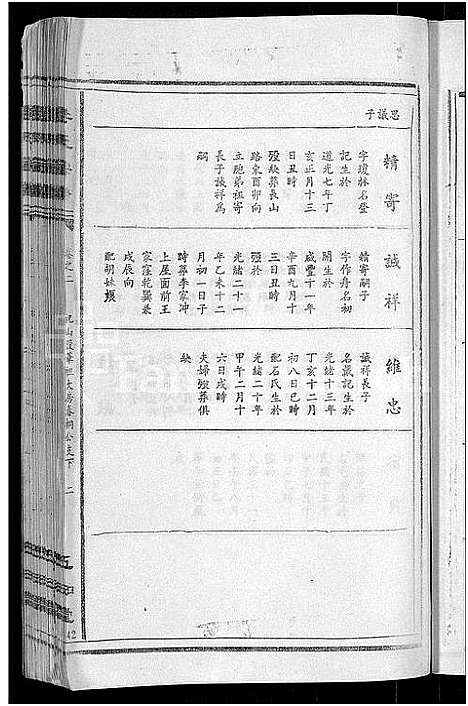 思議子
精寄
字瓊林名登
記生於
道光七年丁
亥正月十三
日丑時
歿缺葬長山
路東酉卯向
立胞弟祖寄
長子誠祥為
嗣
誠祥
精寄嗣子
字作舟名初
開生於
咸豐十一年
辛酉九月十
三日丑時
歿於
光緒二十一
年乙未十二
月初一日子
時葬李家冲
上屋面前王
家窪乾巽兼
戌辰向
配胡妹媛
維忠
誠祥長子
名歲記生於
光緒十三年
丁亥十二月
初八日巳時
配石氏生於
光緒二十年
甲午二月十
六日戌時
夫婦歿葬俱
缺
卷之二
二
42